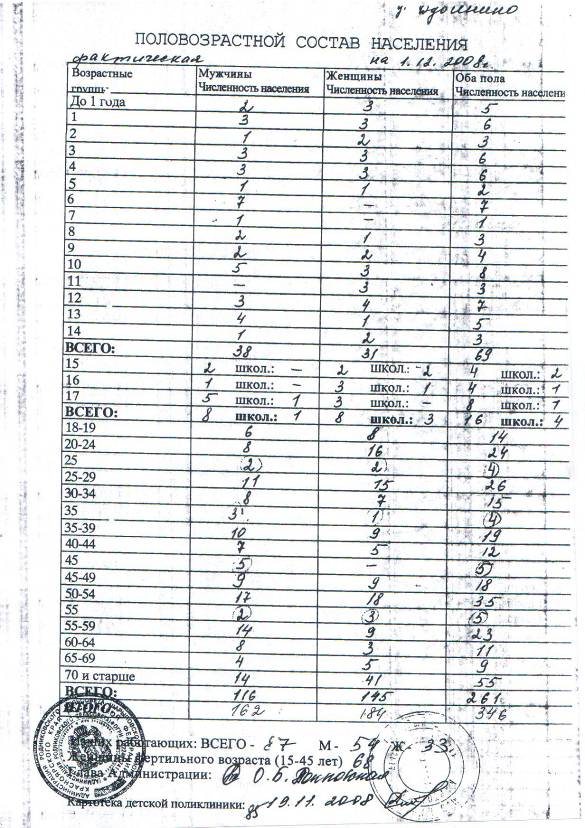 ПОЛОВОЗРАСТНОЙ СОСТАВ НАСЕЛЕНИЯ
фактическая на 1.12.2008г.
Возрастные группы Мужчины Численность населения Женщины Численность населения Оба пола Численность населени
До 1 года 2 3 5
1 3 3 6
2 1 2 3
3 3 3 6
4 3 3 6
5 1 1 2
6 7 – 7
7 1 – 1
8 2 1 3
9 2 2 4
10 5 3 8
11 – 3 3
12 3 4 7
13 4 1 5
14 1 2 3
ВСЕГО: 38 31 69
15 2 школ.: – 2 школ.: 2 4 школ.: 2
16 1 школ.: – 3 школ.: 1 4 школ.: 1
17 5 школ.: 1 3 школ.: – 8 школ.: 1
ВСЕГО: 8 школ.: 1 8 школ.: 3 16 школ.: 4
18-19 6 8 14
20-24 8 16 24
25 (2) (2) (4)
25-29 11 15 26
30-34 8 7 15
35 3 (1) (4)
35-39 10 9 19
40-44 7 5 12
45 (5) – (5)
45-49 9 9 18
50-54 17 18 35
55 (2) (3) (5)
55-59 14 9 23
60-64 8 3 11
65-69 4 5 9
70 и старше 14 41 55
ВСЕГО: 116 145 261
ИТОГО: 162 184 346
них работающих: ВСЕГО - 87 М - 54 Ж - 33
Женщины фертильного возраста (15-45 лет) 68
Глава Администрации: О.В.
Картотека детской поликлиники: 19.11.2008